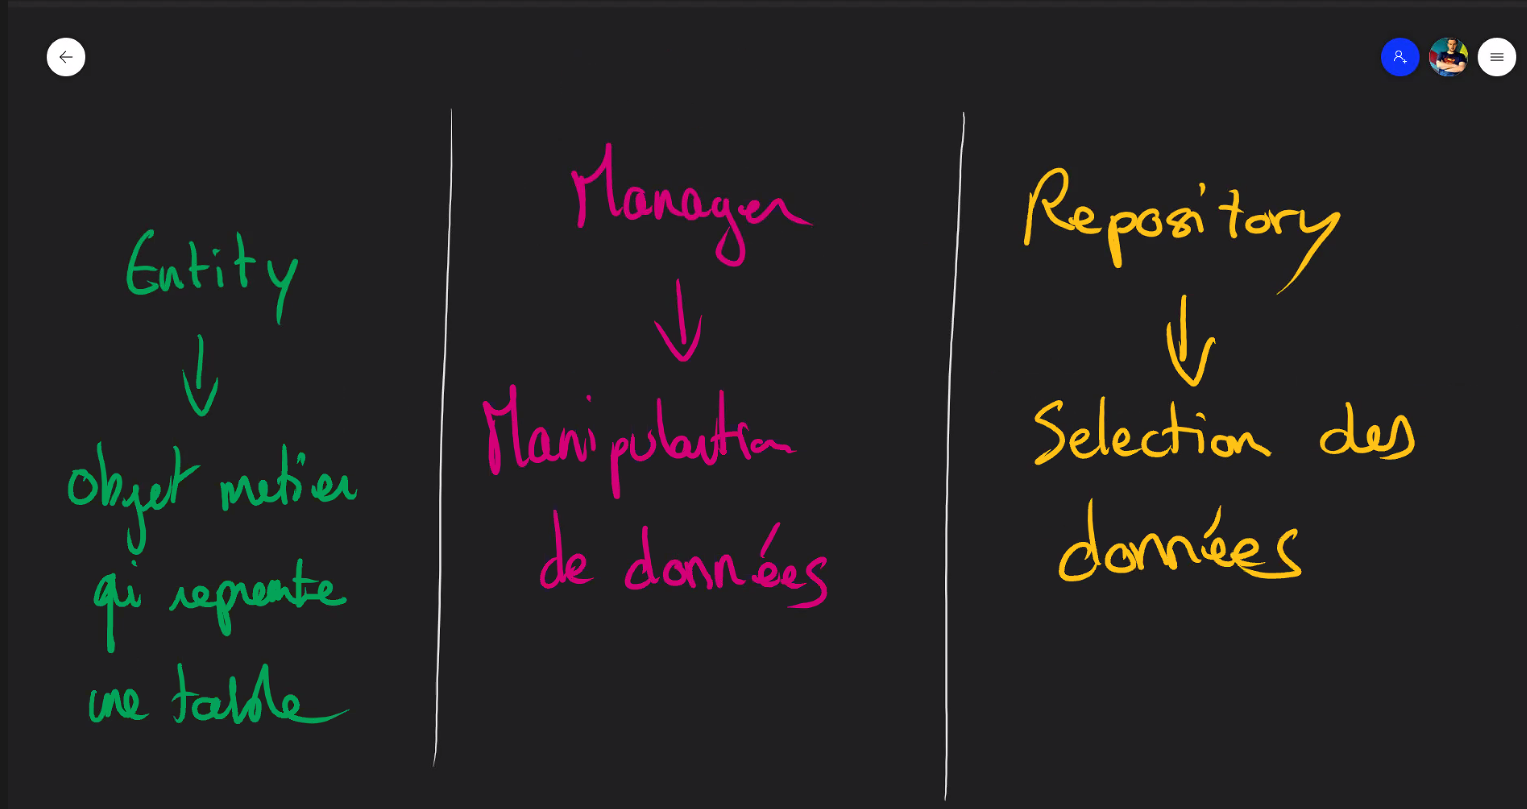 Entity
Objet metier
qui repreente
une table
Manager
Manipulation
de données
Repository
Selection des
données